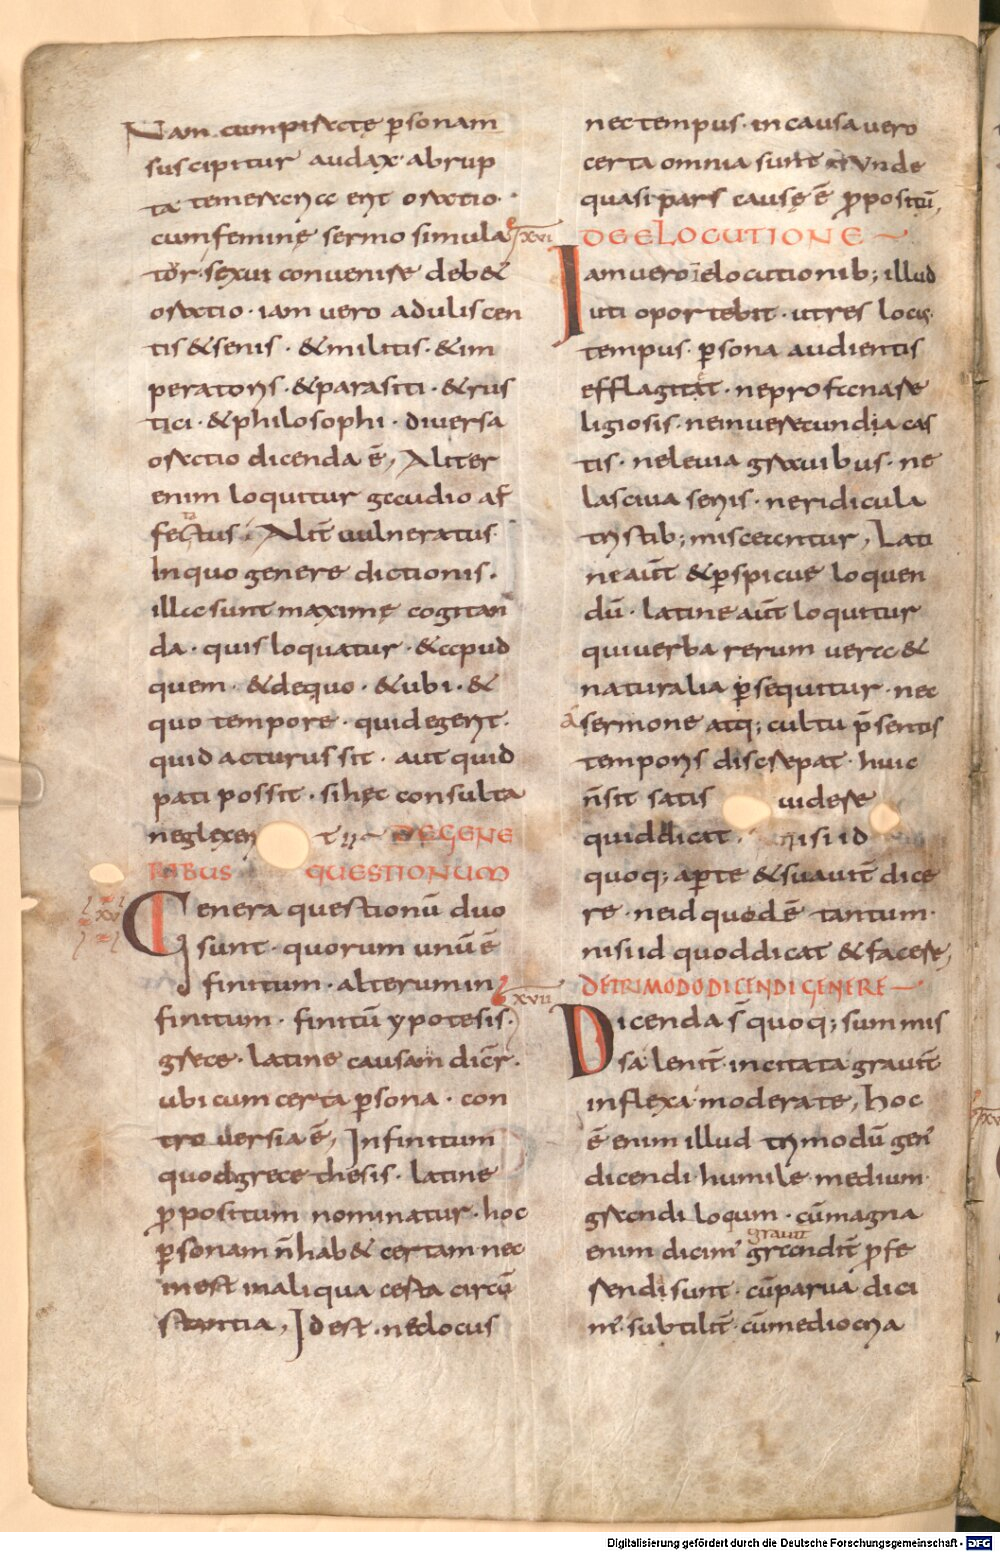 Nam cum piractę p̄sonam
suscipitur audax · abrup
ta temeraria erit oratio ·
cum feminę sermo simula
tur · sexui conuenire deb&
oratio · iam uero aduliscen
tis & senis · & militis · & im
peratoris · & parasiti · & rus
tici · & philosophi · diuersa
oratio dicenda ē, Aliter
enim loquitur gaudio af
fectus, Alit̄ uulneratus ·
In quo genere dictionis ·
illa sunt maximę cogitan
da · quis loquatur · & apud
quem · & de quo · & ubi · &
quo tempore · quid egerit ·
quid acturus sit · aut quid
pati possit · si hęc consulta
neglexerit DE GENE
RIBUS QUESTIONUM
XV
Genera questionū duo
sunt · quorum unū ē
finitum · alterum in
finitum · finitū ypotesis ·
grece · latine causam dicr̄ ·
ubi cum certa p̄sona · con
tro uersia ē, Infinitum
quod grece thesis · latine
p̄positum nominatur · hoc
p̄sonam n̄ hab& certam nec
inest in aliqua certa circū
stantia, Id est · nec locus
nec tempus · in causa uero
certa omnia sunt Unde
quasi pars causę ē p̄positū,
XVI
DE ELOCUTIONE
Iam uero elocutionib; illud
uti oportebit · ut res locus ·
tempus · p̄sona audientis
efflagitat · ne profana re
ligiosis · ne inuerecundia cas
tis · ne leuia grauibus · ne
lasciua seriis · ne ridicula
tristib; misceantur, Lati
ne aūt & p̄spicue loquen
dū · latine aūt loquitur
qui uerba rerum uera &
naturalia p̄sequitur · nec
a sermone atq; cultu p̄sentis
temporis discrepat · huic
n̄ sit satis uidere
quid dicat · nisi id
quoq; apte & suauit̄ dice
re · ne id quod ē tantum ·
nisi id quod dicat & facere,
XVII
DE TRIMODO DICENDI GENERE
Dicenda s̄ quoq; summis
sa lenit̄ · incitata grauit̄
inflexa moderate, hoc
ē enim illud trimodū geń
dicendi · humile · medium ·
grandiloqum · cū magna
grauit̄
enim dicim̄ grandit̄ p̄fe
rendi sunt · cū parua dici
m̄ · subtilit̄ · cū mediocria